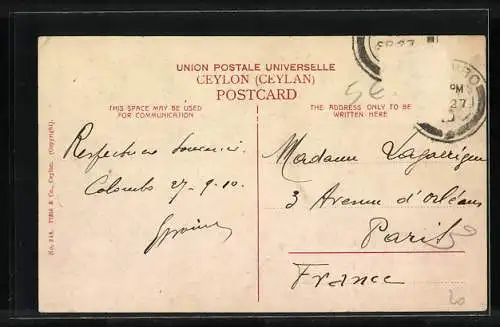 SP 27
UNION POSTALE UNIVERSELLE
CEYLON (CEYLAN)
POSTCARD
PM
27
THIS SPACE MAY BE USED
FOR COMMUNICATION
THE ADDRESS ONLY TO BE
WRITTEN HERE
Respectueux Souvenir.
Colombo 27-9-10.
Madame Lagarrigue
3 Avenue d'Orléans
Paris
France
No. 248. Plâté & Co., Ceylon. (Copyright).
50
20